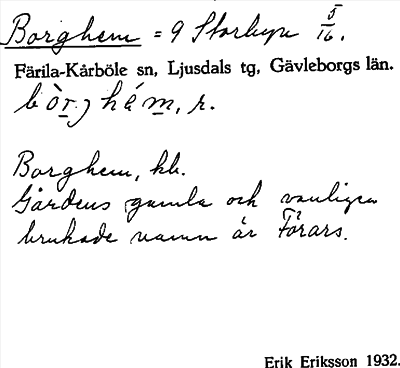 Borghem = 9 Storhyn 5/16.
Färila-Kårböle sn, Ljusdals tg, Gävleborgs län.
bòrjhém, r.
Borghem, hb.
Gårdens gamla och vanligen
brukade namn är Förars.
Erik Eriksson 1932.